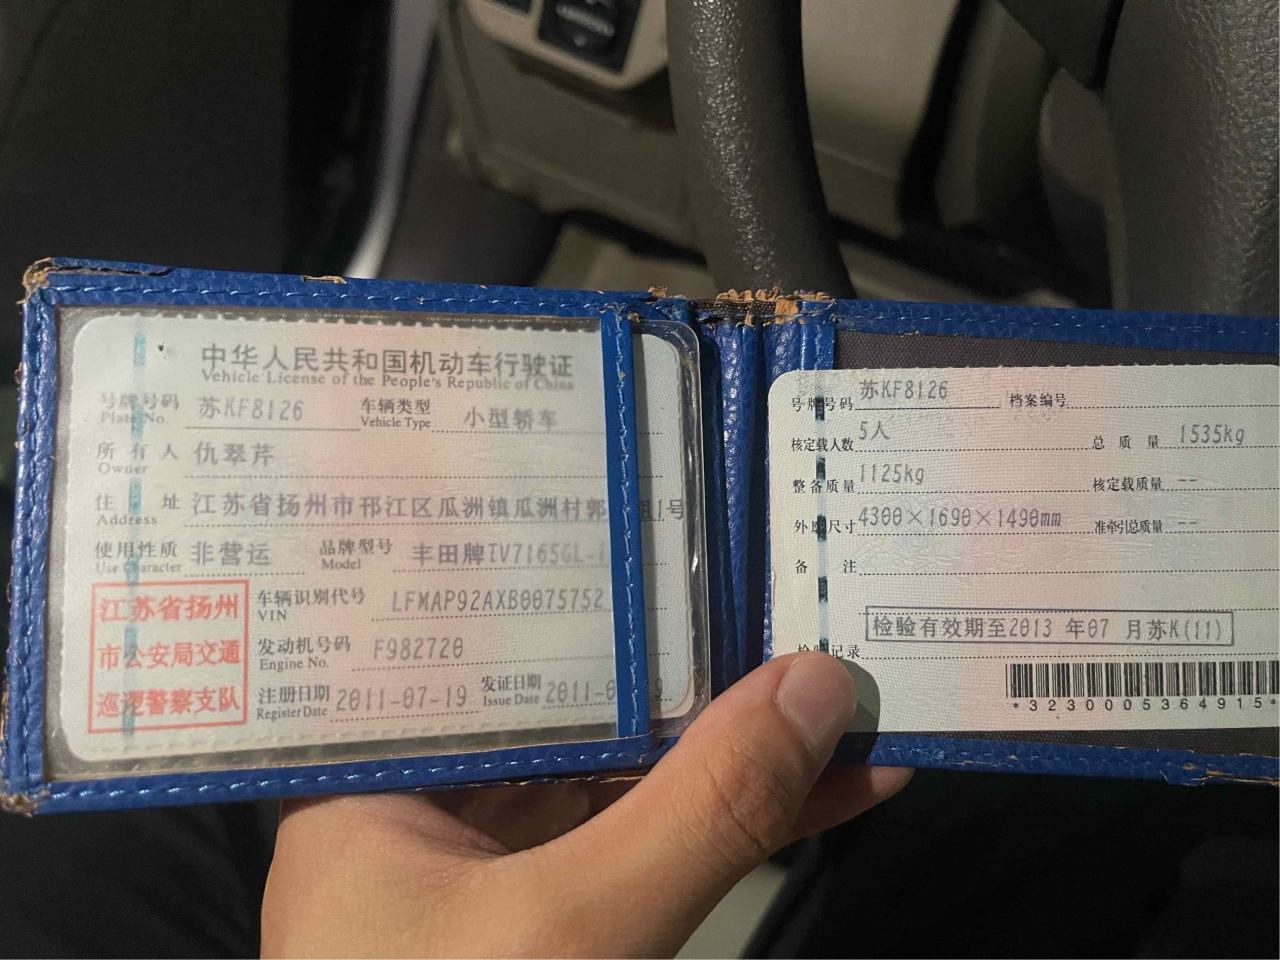 中华人民共和国机动车行驶证
Vehicle License of the People's Republic of China
号牌号码 苏KF8126 车辆类型 小型轿车
Plate No. Vehicle Type
所有人 仇翠芹
Owner
住址 江苏省扬州市邗江区瓜洲镇瓜洲村郭 组1号
Address
使用性质 非营运 品牌型号 丰田牌TV7165GL-i
Use Character Model
江苏省扬州
市公安局交通
巡逻警察支队
车辆识别代号 LFMAP92AXB0075752
VIN
发动机号码 F982720
Engine No.
注册日期 2011-07-19 发证日期 2011-0 9
Register Date Issue Date
号牌号码 苏KF8126 档案编号
核定载人数 5人 总质量 1535kg
整备质量 1125kg 核定载质量 --
外廓尺寸 4300×1690×1490mm 准牵引总质量 --
备注
检验有效期至2013 年07 月苏K(11)
检验记录
*3230005364915*